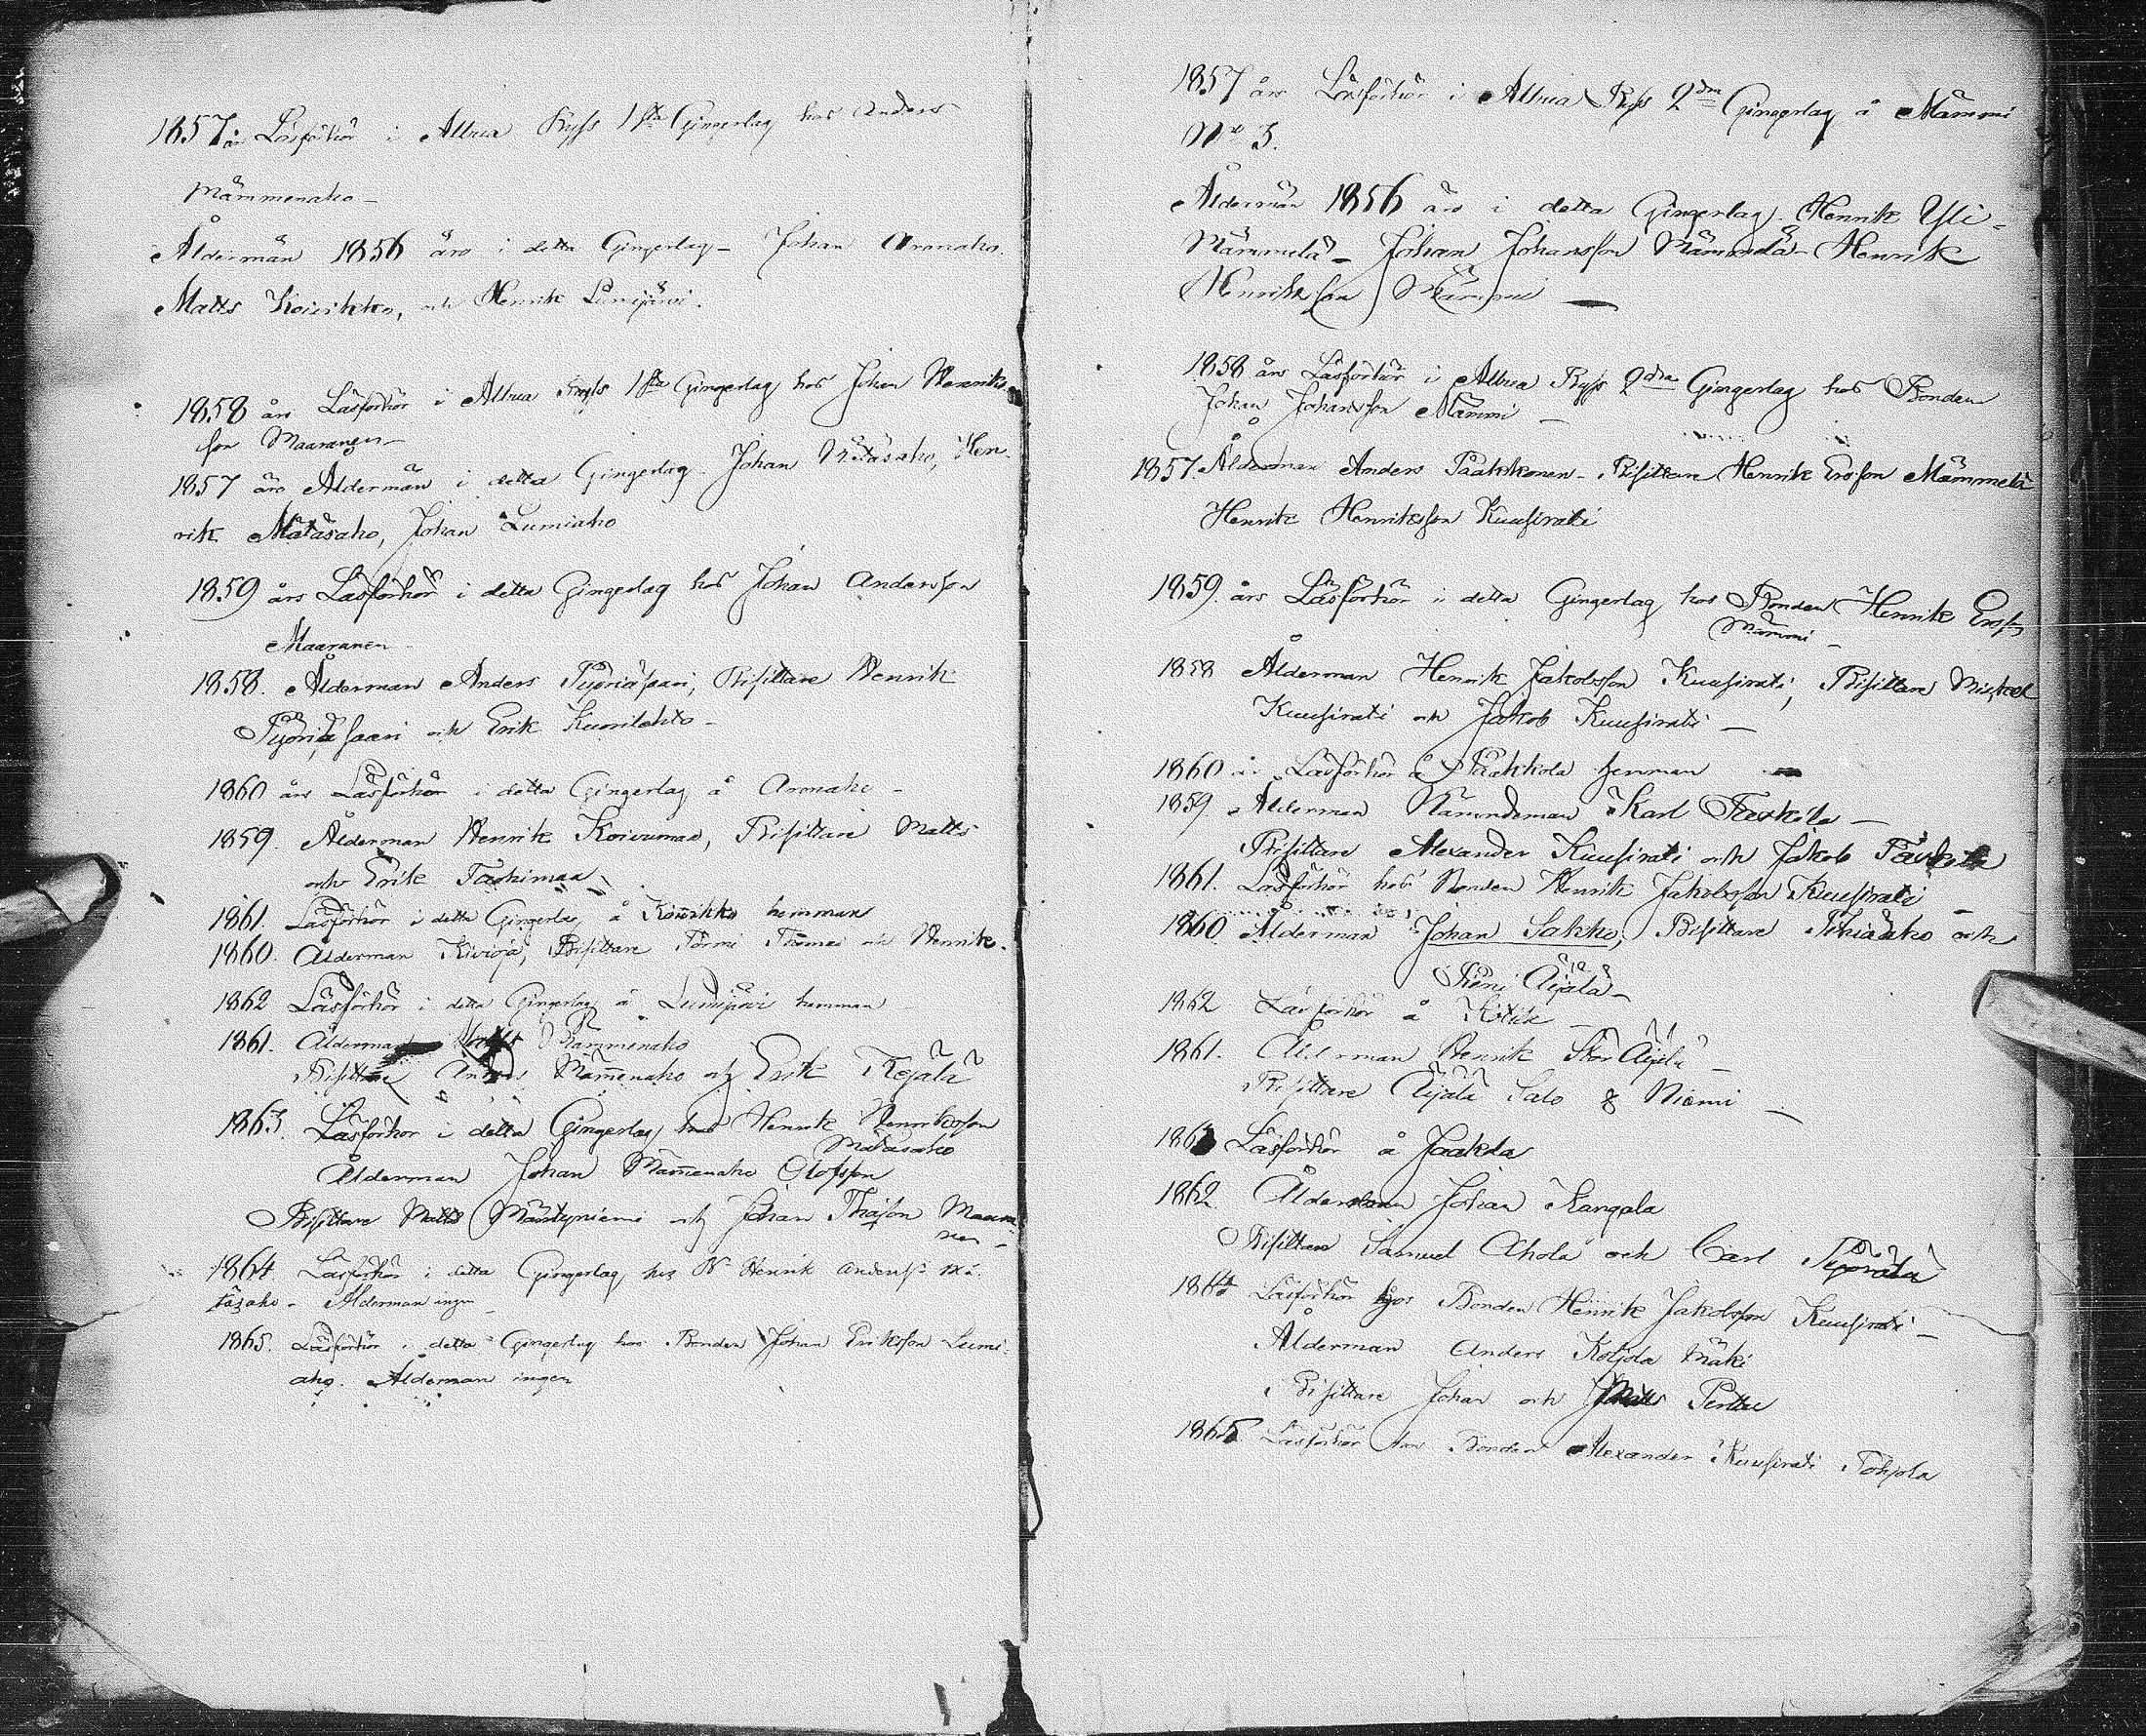 1857 års Läsförhör i Alkia Byss 1sta Gingerlag hos Anders
Mämmenaho –
Åldermän 1856 äro i detta Gingerlag – Johan Aronaho.
Matts Koivikko, och Henrik Lumijärvi.
1858 års Läsförhör i Byss 1sta Gingerlag hos Johan Henriks
son Maaranen –
1857 äro Åldermän i detta Gingerlag – Johan Mätäsaho, Hen-
rik Mätäsaho, Johan Lumiaho
1859 års Läsförhör i detta Gingerlag hos Johan Andersson
Maaranen
1858. Ålderman Anders Pyöriäsaari, Bisittare Henrik
Pyöriäsaari och Erik Kuorilehto –
1860 års Läsförhör i detta Gingerlag å Aronaho –
1859. Ålderman Henrik Koivumaa, Bisittare Matts
och Erik
1861. Läsförhör i detta Gingerlag å Koivikko hemman
1860. Ålderman Kivioja, Bisittare Törmi och Henrik.
1862 Läsförhör i detta Gingerlag å Lumijärvi hemman
1861. Ålderman Mämmenaho
Bisittare Anders Mämenaho och Erik
1863. Läsförhör i detta Gingerlag hos Henrik Henriksson
Mätäsaho
Ålderman Johan Mämenaho Olofsson
Bisittare Matts Mäntyniemi och Johan Maara
nen –
1864. Läsförhör i detta Gingerlag hos Henrik Anderss: Mä-
täsaho – Ålderman ingen
1865. Läsförhör i detta Gingerlag hos Bonden Johan Eriksson Lumi-
aho. Ålderman ingen
1857 års Läsförhör i Byss 2dra Gingerlag å Mämmi
No 3.
Åldermän 1856 äro i detta Gingerlag. Henrik Yli-
Mämmelä – Johan Johansson Mämmelä – Henrik
Henriksson Mämmi –
1858 års Läsförhör i Byss 2dra Gingerlag hos Bonden
Johan Johansson Mämmi –
1857. Ålderman Anders Pääkkonen – Bisittare Henrik Ersson Mämmelä
Henrik Henriksson Kuusirati
1859. års Läsförhör i detta Gingerlag hos Bonden Henrik Erss
Mämmi –
1858 Ålderman Henrik Jakobsson Kuusirati, Bisittare Mickel
Kuusirati och Jakob Kuusirati –
1860 års Läsförhör å Pääkkola hemman
1859. Ålderman Nämndeman Karl –
Bisittare Alexander Kuusirati och Jakob
1861. Läsförhör hos Bonden Henrik Jakobsson Kuusirati –
1860 Ålderman Johan Sakko, Bisittare och
Pieni Äijälä –
1862 Läsförhör å –
1861. Ålderman Henrik Stor Äijälä –
Bisittare Äijälä Salo & Niemi –
1863 Läsförhör å Jaakola
1862. Ålderman Johan Kangala
Bisittare Samuel Ahola och Carl
1864 Läsförhör hos Bonden Henrik Jakobsson Kuusirati –
Ålderman Anders Kotjola Mäki
Bisittare Johan och Matts Perttu
1865 Läsförhör hos Bonden Alexander Kuusirati Pohjola